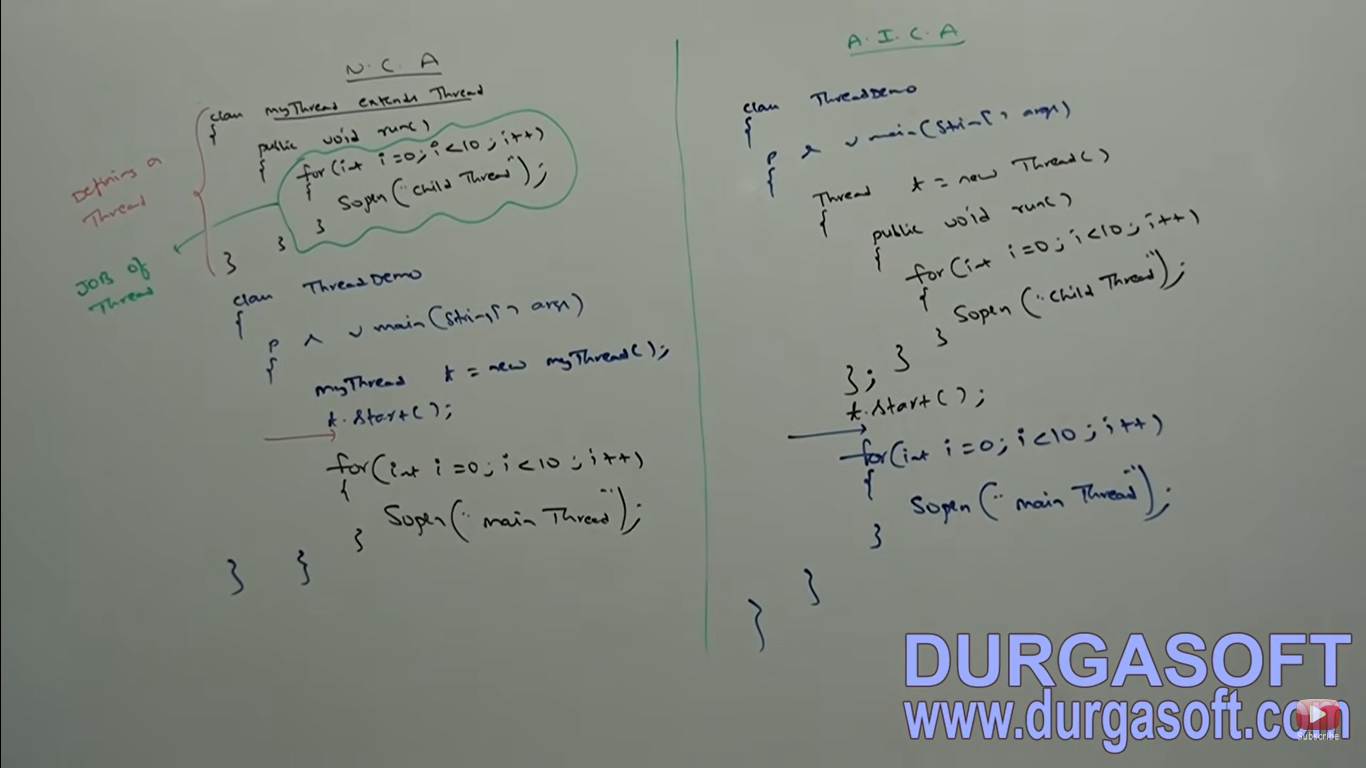 N. C. A
class myThread extends Thread
{
public void run()
{
for(int i=0; i<10; i++)
{
Sopen("child Thread");
}
}
}
Defining a
Thread
JOB of
Thread
class ThreadDemo
{
p s v main(String[] args)
{
myThread t = new myThread();
t.start();
for(int i=0; i<10; i++)
{
Sopen("main Thread");
}
}
}
A. I. C. A
class ThreadDemo
{
p s v main(String[] args)
{
Thread t = new Thread()
{
public void run()
{
for(int i=0; i<10; i++)
{
Sopen("child Thread");
}
}
};
t.start();
for(int i=0; i<10; i++)
{
Sopen("main Thread");
}
}
}
DURGASOFT
www.durgasoft.com
Subscribe